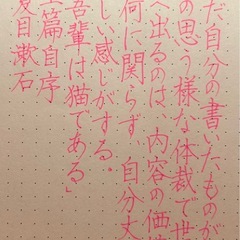 だ自分の書いたものが
の思う様な体裁で世
へ出るのは、内容の価
何に関らず、自分丈
しい感じがする。
吾輩は猫である」
篇自序
夏目漱石